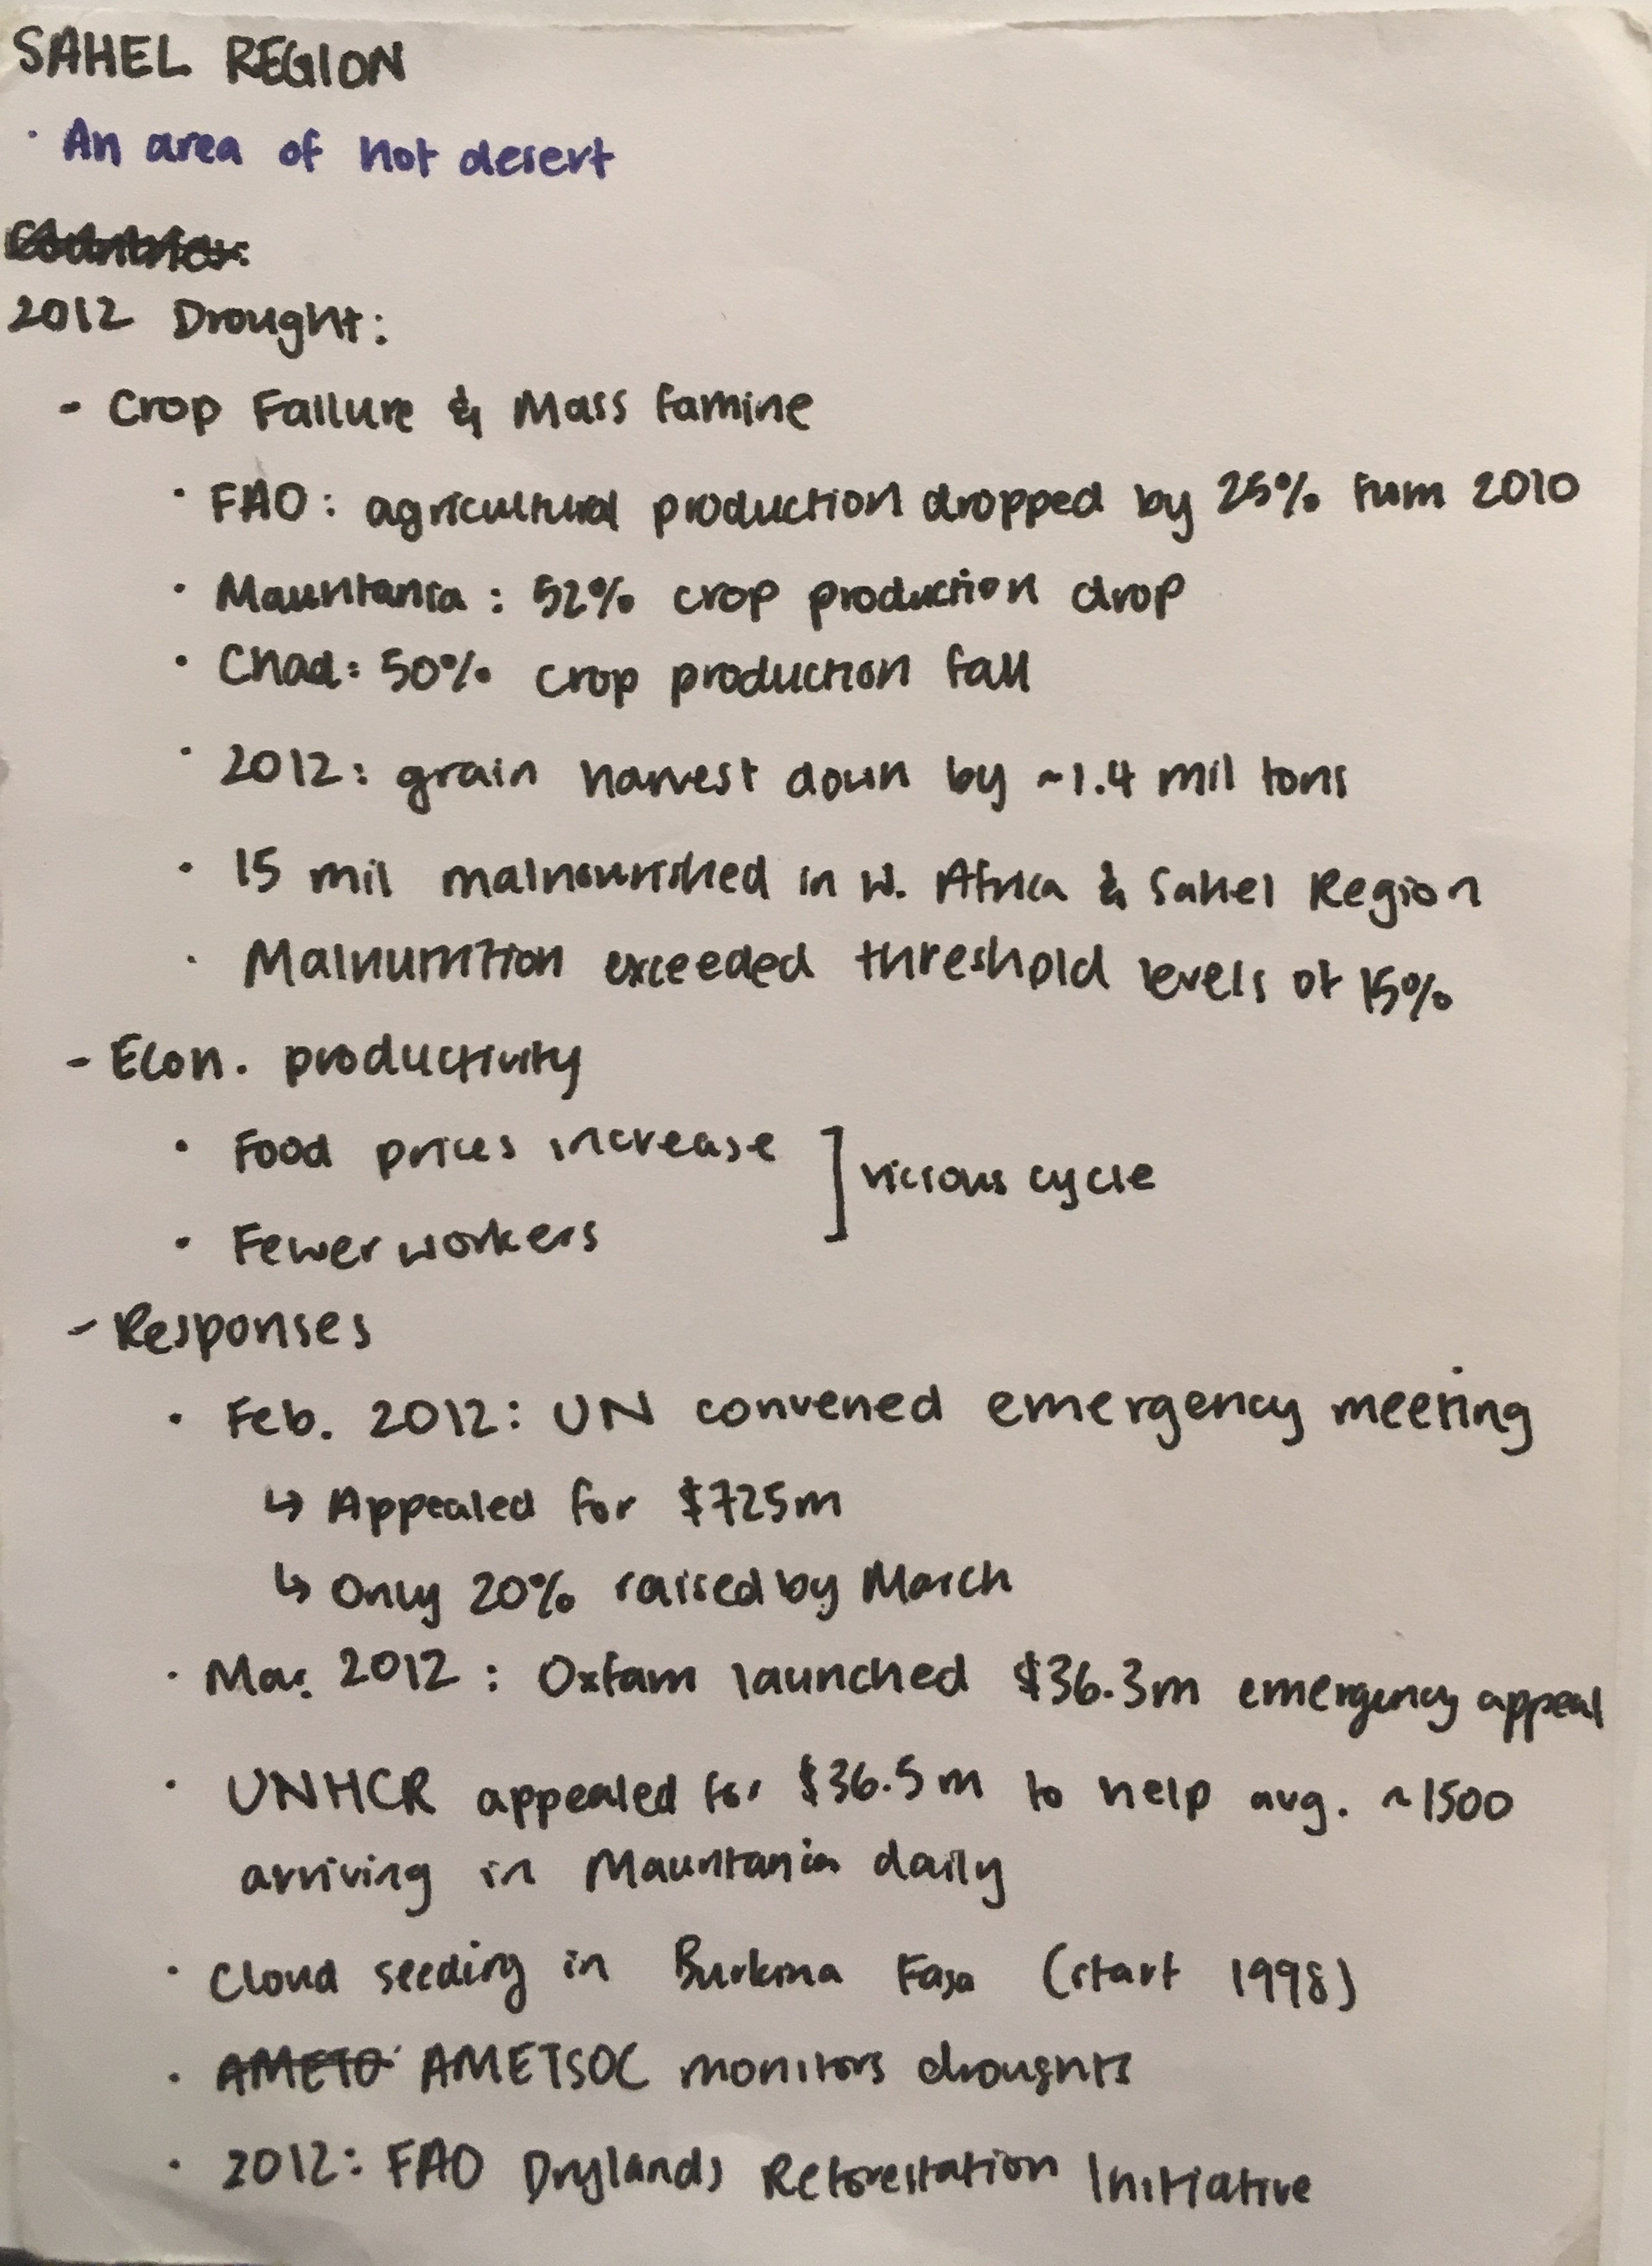 SAHEL REGION
· An area of hot desert
Countries:
2012 Drought:
- Crop Failure & Mass famine
· FAO: agricultural production dropped by 25% from 2010
· Mauritania: 52% crop production drop
· Chad: 50% crop production fall
· 2012: grain harvest down by ~1.4 mil tons
· 15 mil malnourished in W. Africa & Sahel Region
· Malnutrition exceeded threshold levels of 15%
- Econ. productivity
· Food prices increase
] vicious cycle
· Fewer workers
- Responses
· Feb. 2012: UN convened emergency meeting
↳ Appealed for $725m
↳ Only 20% raised by March
· Mar. 2012: Oxfam launched $36.3m emergency appeal
· UNHCR appealed for $36.5m to help avg. ~1500
arriving in Mauritania daily
· Cloud seeding in Burkina Faso (start 1998)
· AMETO AMETSOC monitors droughts
· 2012: FAO Drylands Reforestation Initiative